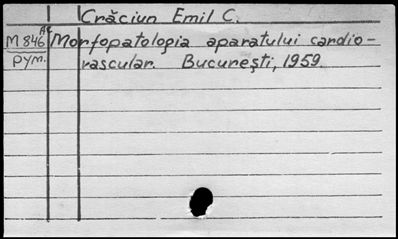 Crăciun Emil C.
M 846 Ac Morfopatologia aparatului cardio-
pym. vascular. Bucureşti, 1959.